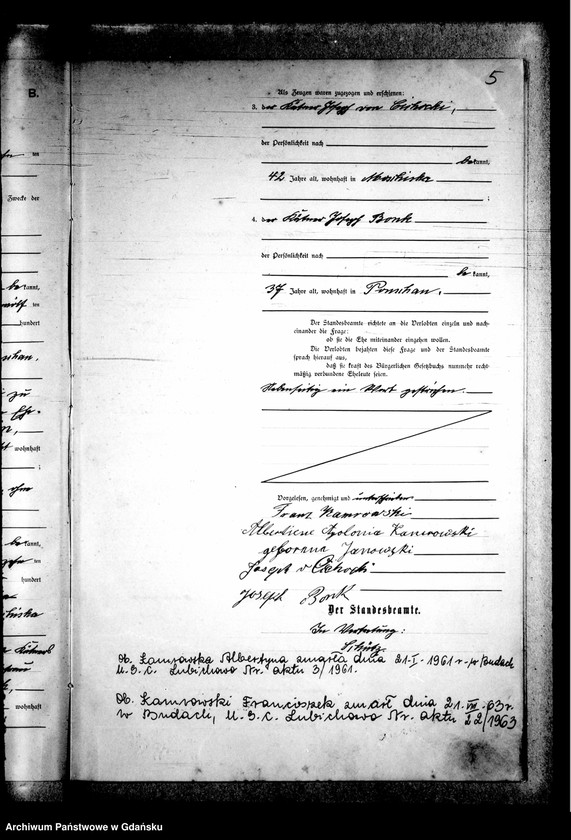 5
B.
Als Zeugen waren zugezogen und erschienen:
3. der Kätner Josef von Cichocki,
der Persönlichkeit nach
bekannt,
42 Jahre alt, wohnhaft in
;
4. der Kätner Josef Bonk
der Persönlichkeit nach
bekannt,
37 Jahre alt, wohnhaft in Ponschau.
Der Standesbeamte richtete an die Verlobten einzeln und nach-
einander die Frage:
ob sie die Ehe miteinander eingehen wollen.
Die Verlobten bejahten diese Frage und der Standesbeamte
sprach hierauf aus,
daß sie kraft des Bürgerlichen Gesetzbuchs nunmehr recht-
mäßig verbundene Eheleute seien.
Nebenseitig ein Wort gestrichen.
Vorgelesen, genehmigt und unterschrieben
Franz Kamrowski
Albertine Apolonia Kamrowski
geborene Janowski
Joseph v Cichocki
Joseph Bonk
Der Standesbeamte.
In Vertretung:
Ob. Kamrowska Albertyna zmarła dnia 21-I-1961 r. w Budach
U.S.C. Lubichowo Nr. aktu 3/1961.
Ob. Kamrowski Franciszek zmarł dnia 21.VII.63 r.
w Budach, U.S.C. Lubichowo Nr. aktu 22/1963
ten
Zwecke der
bekannt,
ten
hundert
zu
wohnhaft
;
bekannt,
ten
hundert
wohnhaft
Archiwum Państwowe w Gdańsku